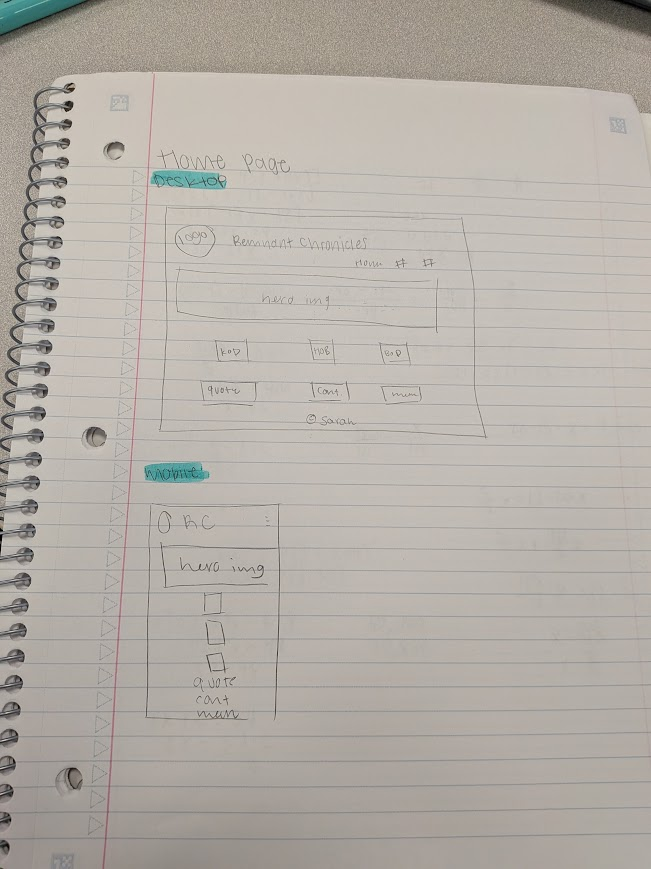 Home Page
Desktop
logo Remnant Chronicles
Home # #
hero img
KoD HOB BoD
quote cont. menu
© Sarah
Mobile
RC
hero img
quote
cont
menu